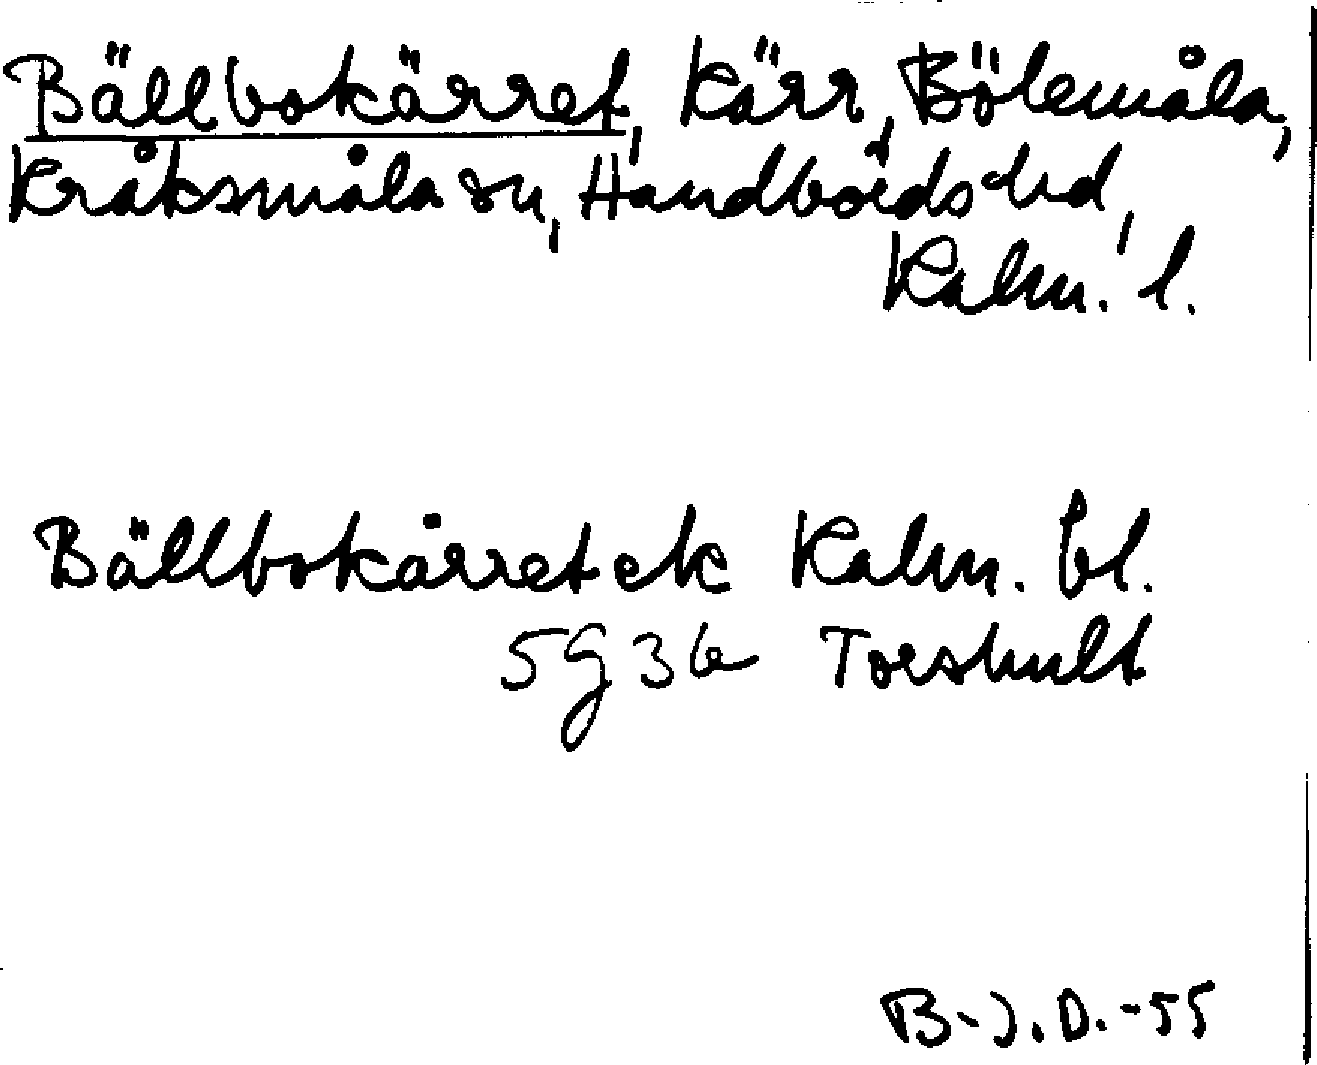 Bällbokärret, Kärr, Bölemåla,
Kråksmåla sn, Handbörds hd,
Kalm. l.
Bällbokärret ek Kalm. bl.
5g 3b Torshult
B-J.D.-55